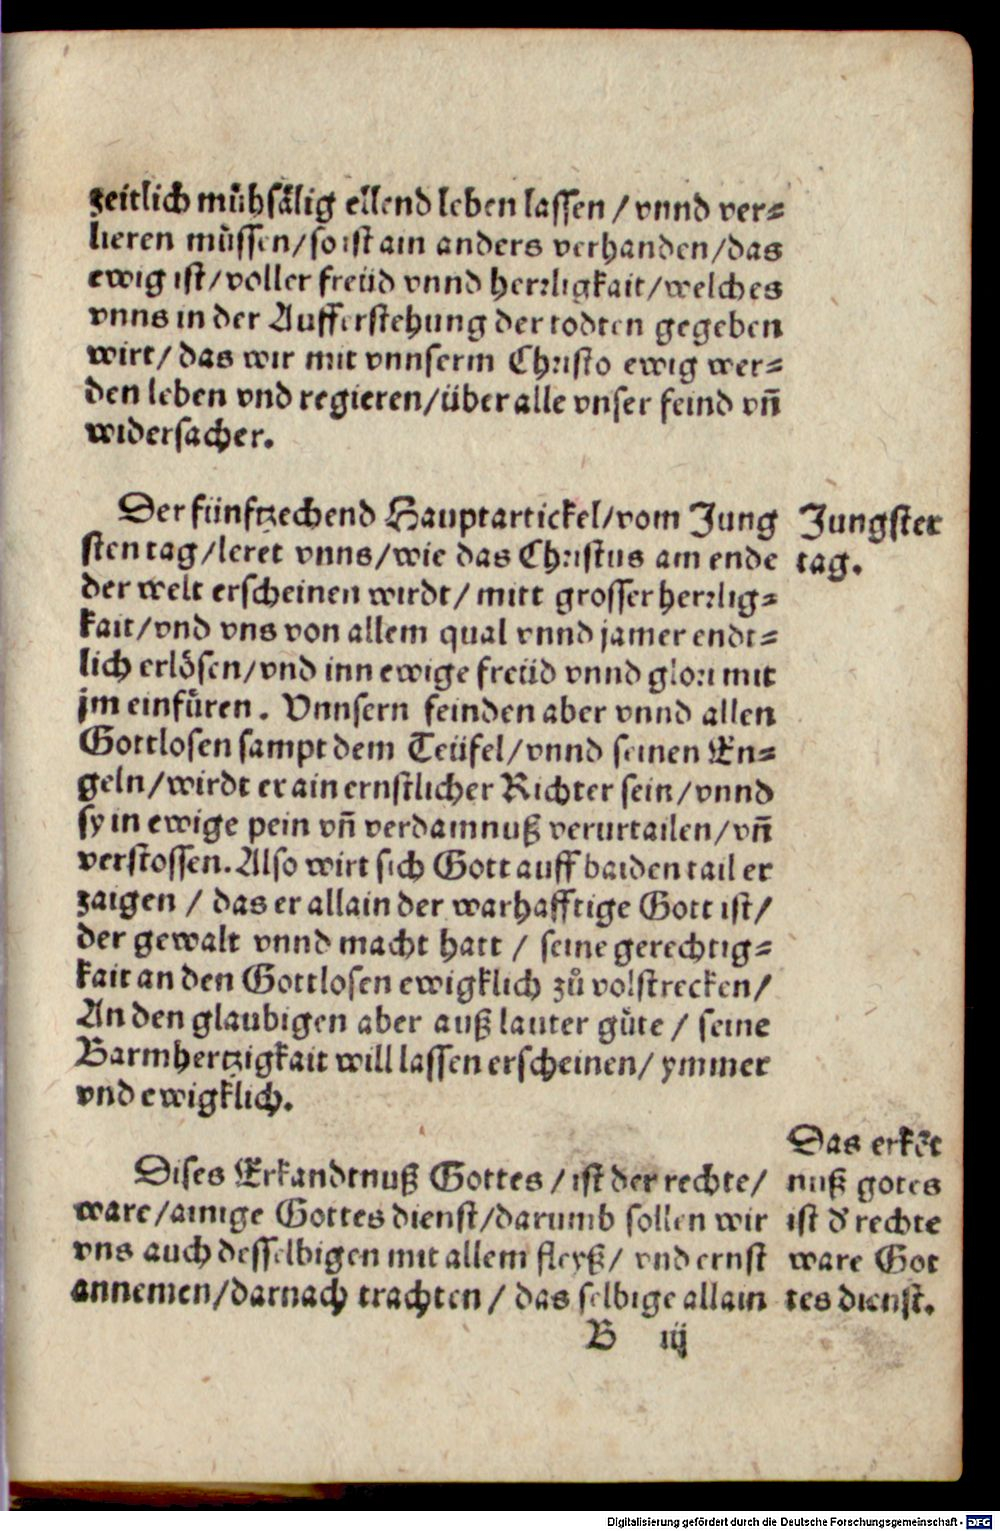 zeitlich mühsälig ellend leben lassen / vnnd ver=
lieren müssen/so ist ain anders verhanden/das
ewig ist/voller freüd vnnd herrligkait/welches
vnns in der Aufferstehung der todten gegeben
wirt/ das wir mit vnnserm Christo ewig wer=
den leben vnd regieren/über alle vnser feind vñ
widersacher.
Der fünftzechend Hauptartickel/vom Jung
sten tag/leret vnns/wie das Christus am ende
der welt erscheinen wirdt/ mitt grosser herrlig=
kait/vnd vns von allem qual vnnd jamer endt=
lich erlösen/vnd inn ewige freüd vnnd glori mit
jm einfüren. Vnnsern feinden aber vnnd allen
Gottlosen sampt dem Teüfel/vnnd seinen En=
geln/wirdt er ain ernstlicher Richter sein/vnnd
sy in ewige pein vñ verdamnuß verurtailen/vñ
verstossen. Also wirt sich Gott auff baiden tail er
zaigen / das er allain der warhafftige Gott ist/
der gewalt vnnd macht hatt / seine gerechtig=
kait an den Gottlosen ewigklich zů volstrecken/
An den glaubigen aber auß lauter güte / seine
Barmhertzigkait will lassen erscheinen/ ymmer
vnd ewigklich.
Dises Erkandtnuß Gottes / ist der rechte/
ware/ainige Gottes dienst/darumb sollen wir
vns auch desselbigen mit allem fleyß/ vnd ernst
annemen/darnach trachten / das selbige allain
B iij
Jungster
tag.
Das erkẽt
nuß gotes
ist d' rechte
ware Got
tes dienst.
Digitalisierung gefördert durch die Deutsche Forschungsgemeinschaft - DFG